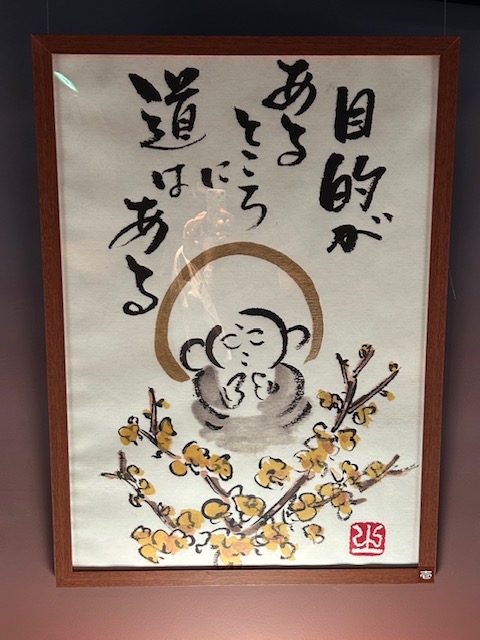 目的が
ある
ところ
に
道は
ある